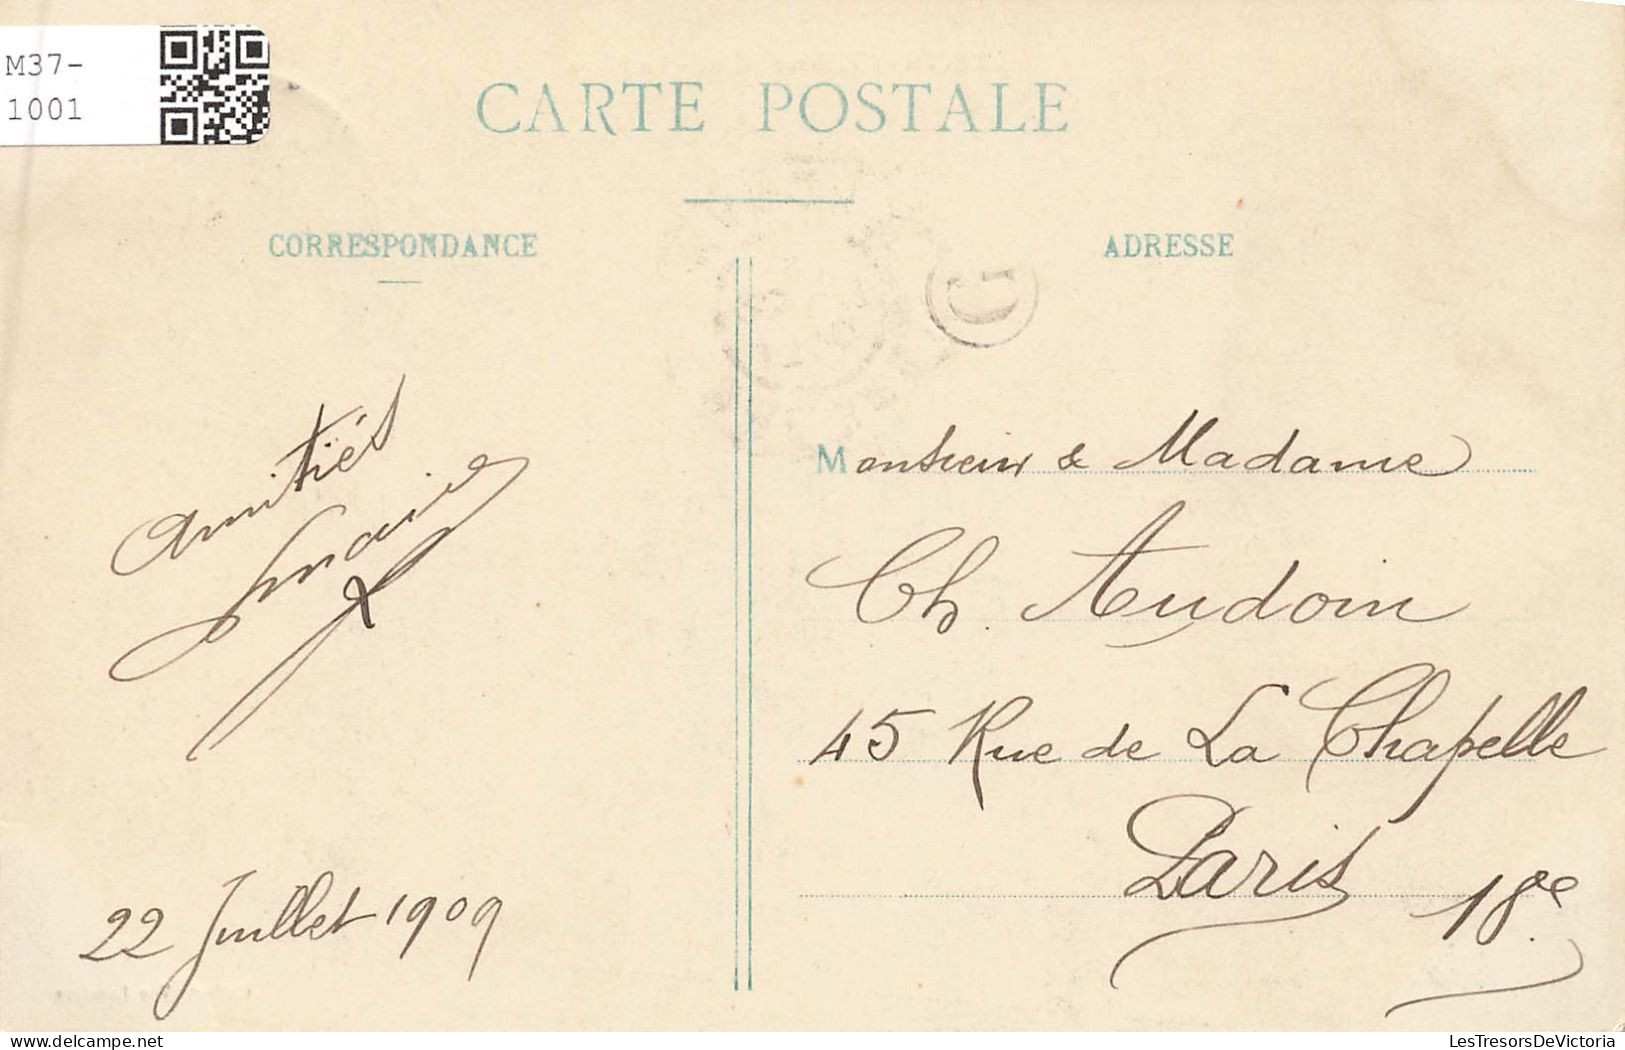 M37-
1001
CARTE POSTALE
CORRESPONDANCE
ADRESSE
D
Amitiés
22 Juillet 1909
Monsieur & Madame
Ch. Audoin
45 Rue de La Chapelle
Paris 18e
LesTresorsDeVictoria.com